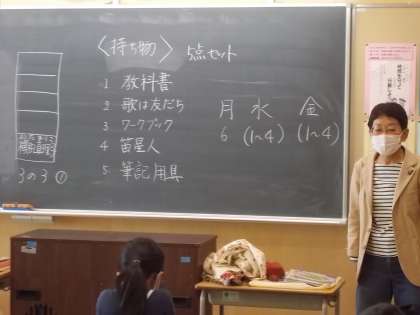 〈持ち物〉 5点セット
1 教科書
2 歌は友だち
3 ワークブック
4 笛星人
5 筆記用具
月 水 金
6 (1~4) (1~4)
3の3 ①